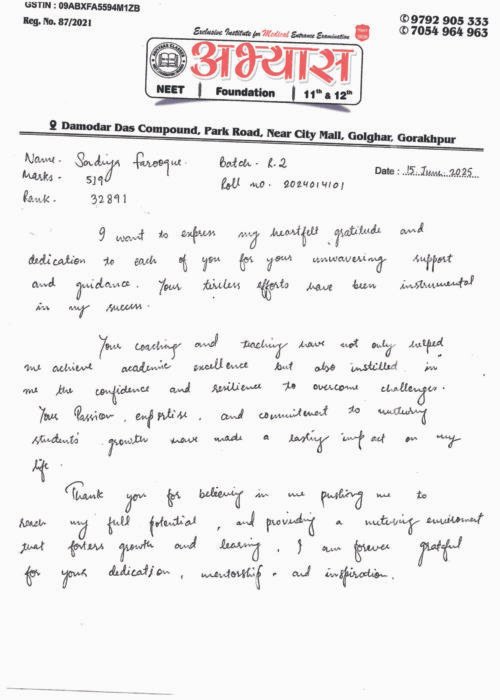 GSTIN : 09ABXFA5594M1ZB
Reg. No. 87/2021
✆ 9792 905 333
✆ 7054 964 963
Exclusive Institute for Medical Entrance Examination
अभ्यास
NEET | Foundation | 11th & 12th
Damodar Das Compound, Park Road, Near City Mall, Golghar, Gorakhpur
Name - Sadiya Farooque. Batch - R.2
Marks - 519 Roll no. 2024014101
Rank. 32891 Date : 15 June 2025
I want to express my heartfelt gratitude and
dedication to each of you for your unwavering support
and guidance. Your tireless efforts have been instrumental
in my success.
Your coaching and teaching have not only helped
me achieve academic excellence but also instilled in
me the confidence and resilience to overcome challenges.
Your Passion, expertise, and commitment to nurturing
students' growth have made a lasting impact on my
life.
Thank you for believing in me pushing me to
reach my full potential, and providing a nuturing enviroment
that fosters growth and learing. I am forever grateful
for your dedication, mentorship. and inspiration.